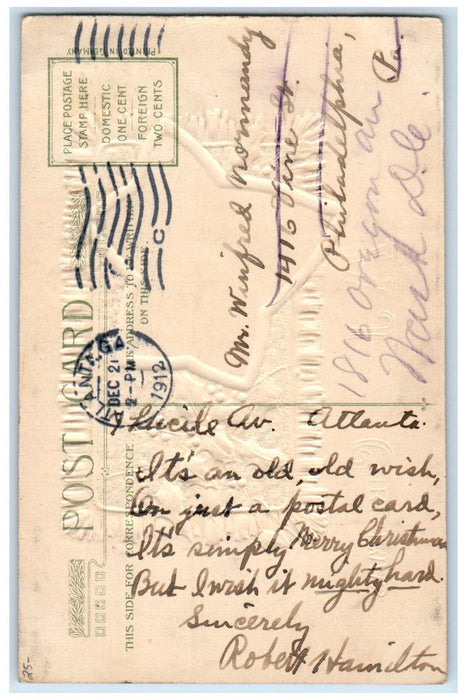 PRINTED IN GERMANY
PLACE POSTAGE
STAMP HERE
DOMESTIC
ONE CENT
FOREIGN
TWO CENTS
POST CARD
THIS SIDE FOR CORRESPONDENCE
ADDRESS TO BE
ON THIS SIDE
ATLANTA, GA
DEC 21
2-PM
1912
C
Mr. Winifred Normandy
1416 Pine St.
Philadelphia,
Pa.
1816 Oregon av
Wash D.C.
Lucile Av. Atlanta.
It's an old, old wish,
On just a postal card,
It's simply Merry Christmas
But I wish it mighty hard.
Sincerely
Robert Hamilton
25-